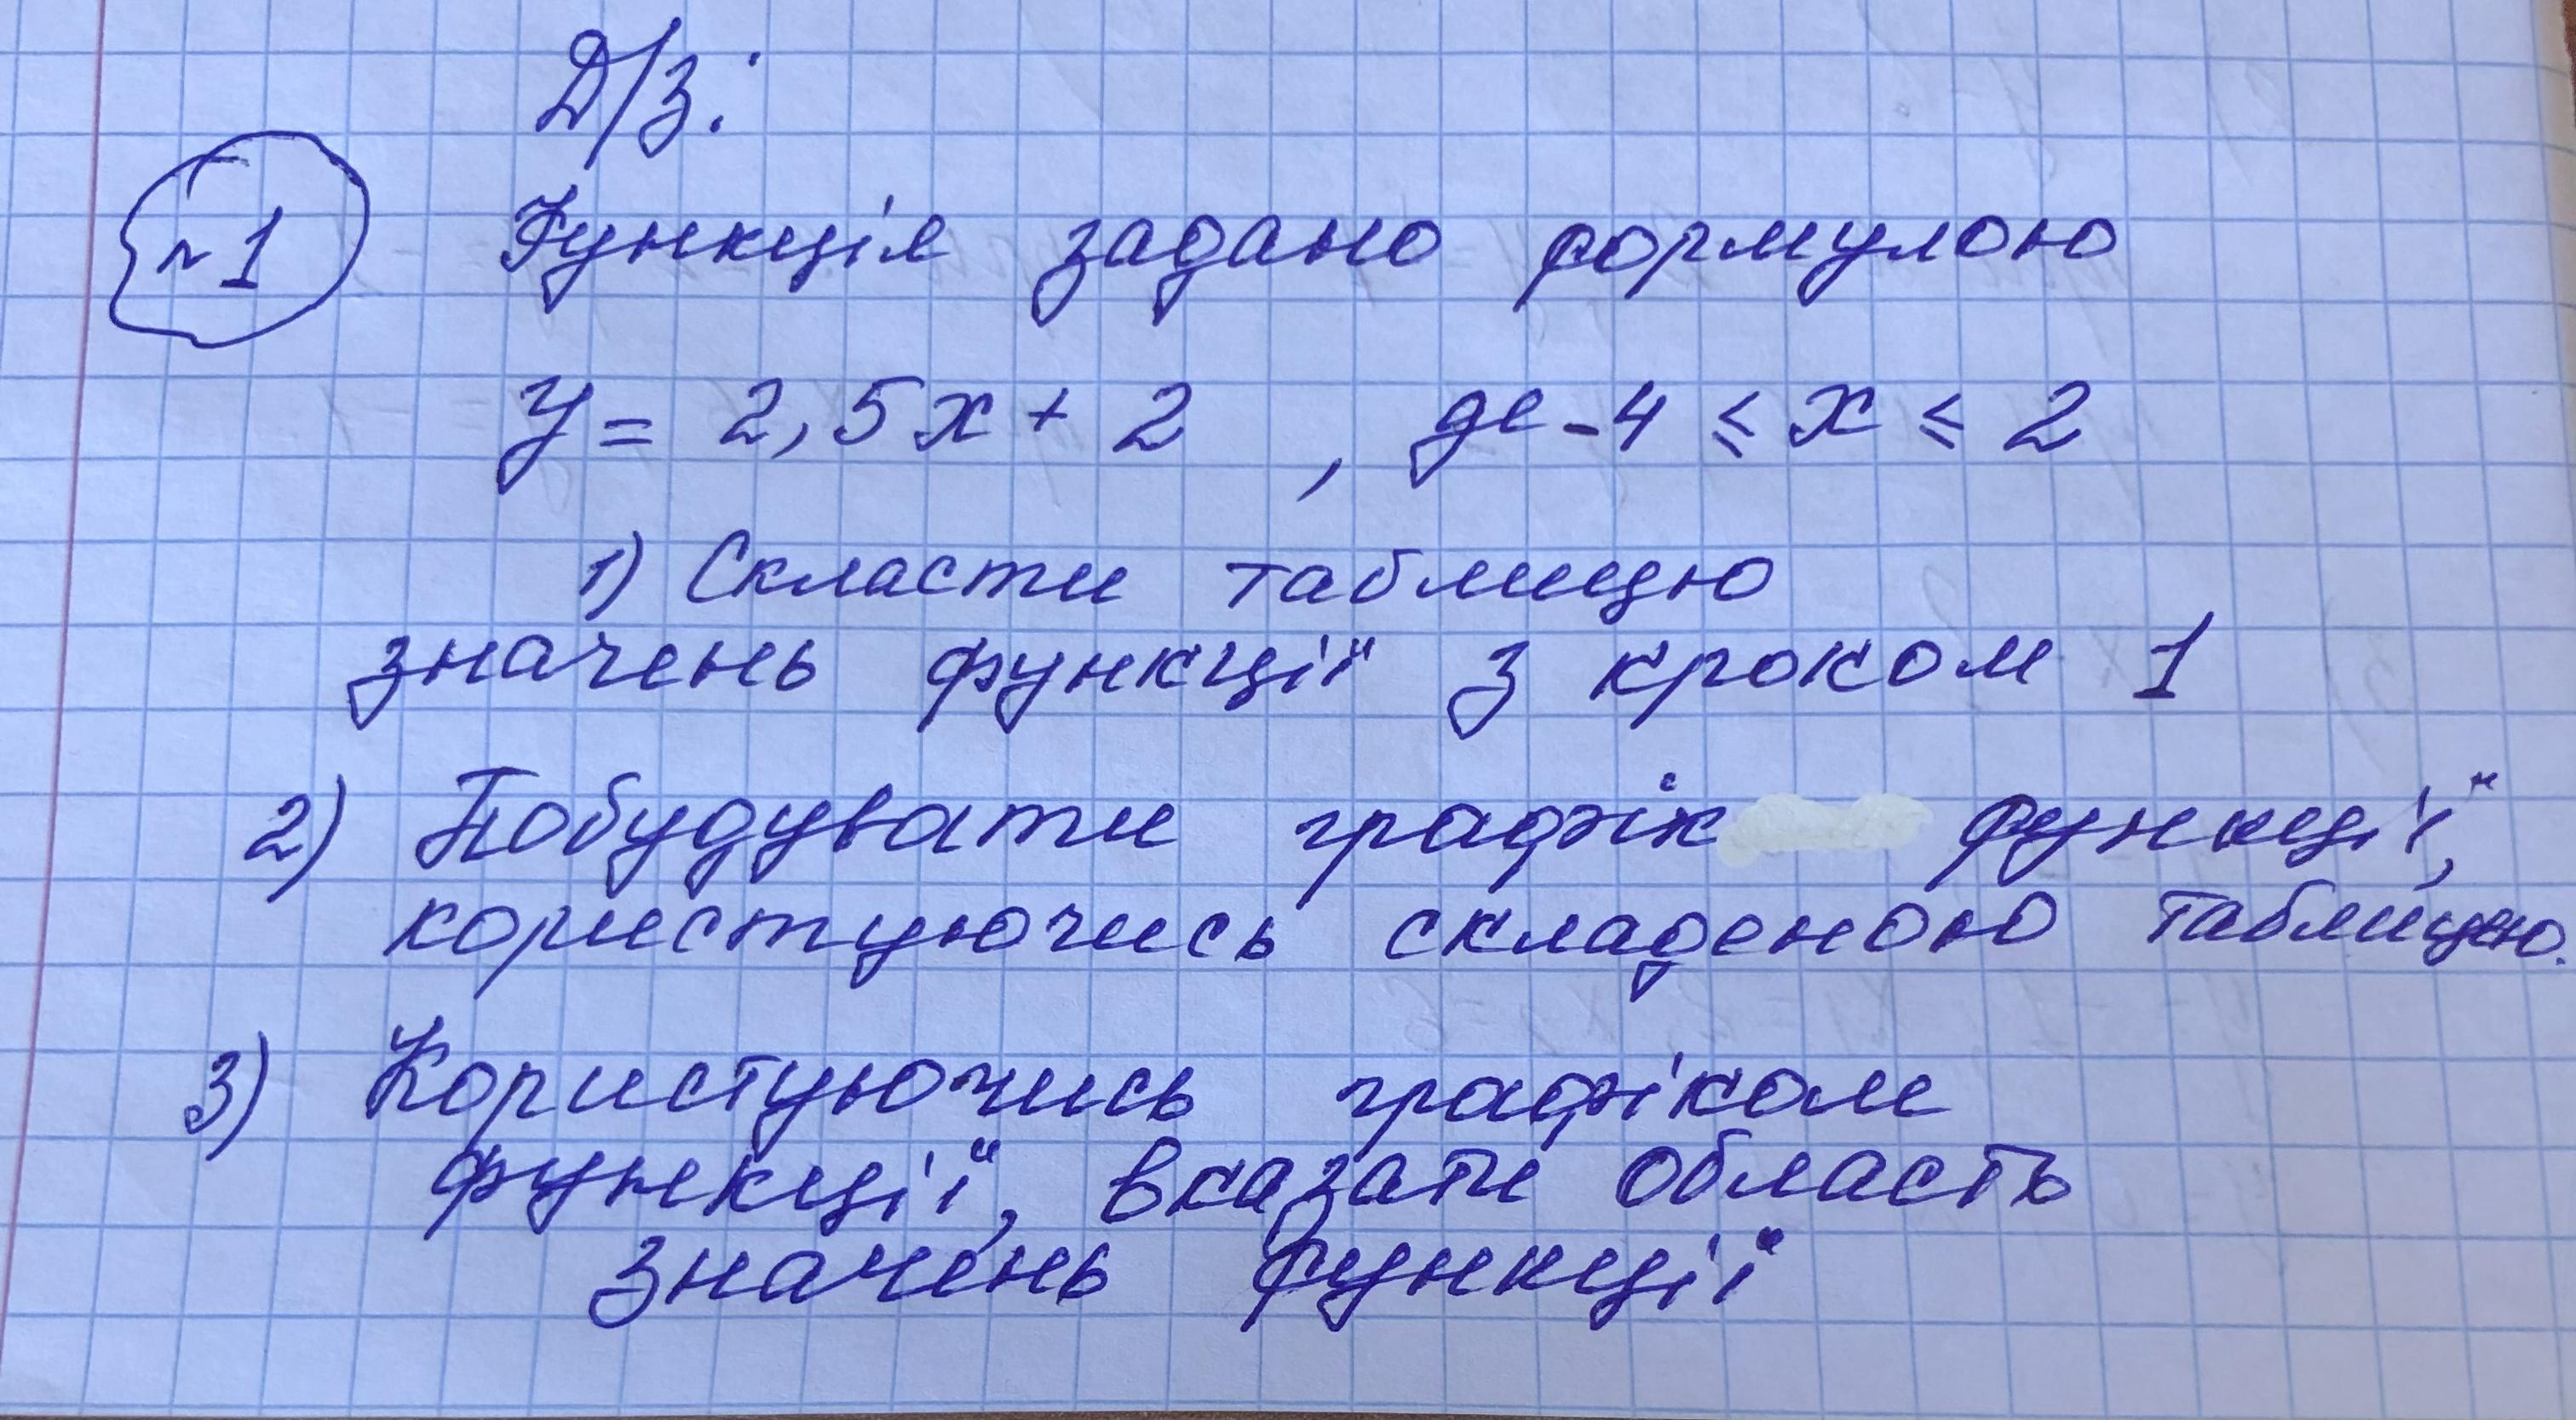 Д/з:
№1 Функція задано формулою
y = 2,5x + 2 , де -4 ≤ x ≤ 2
1) Скласти таблицю
значень функції з кроком 1
2) Побудувати графік функції,
користуючись складеною таблицею.
3) Користуючись графіком
функції, вказати область
значень функції